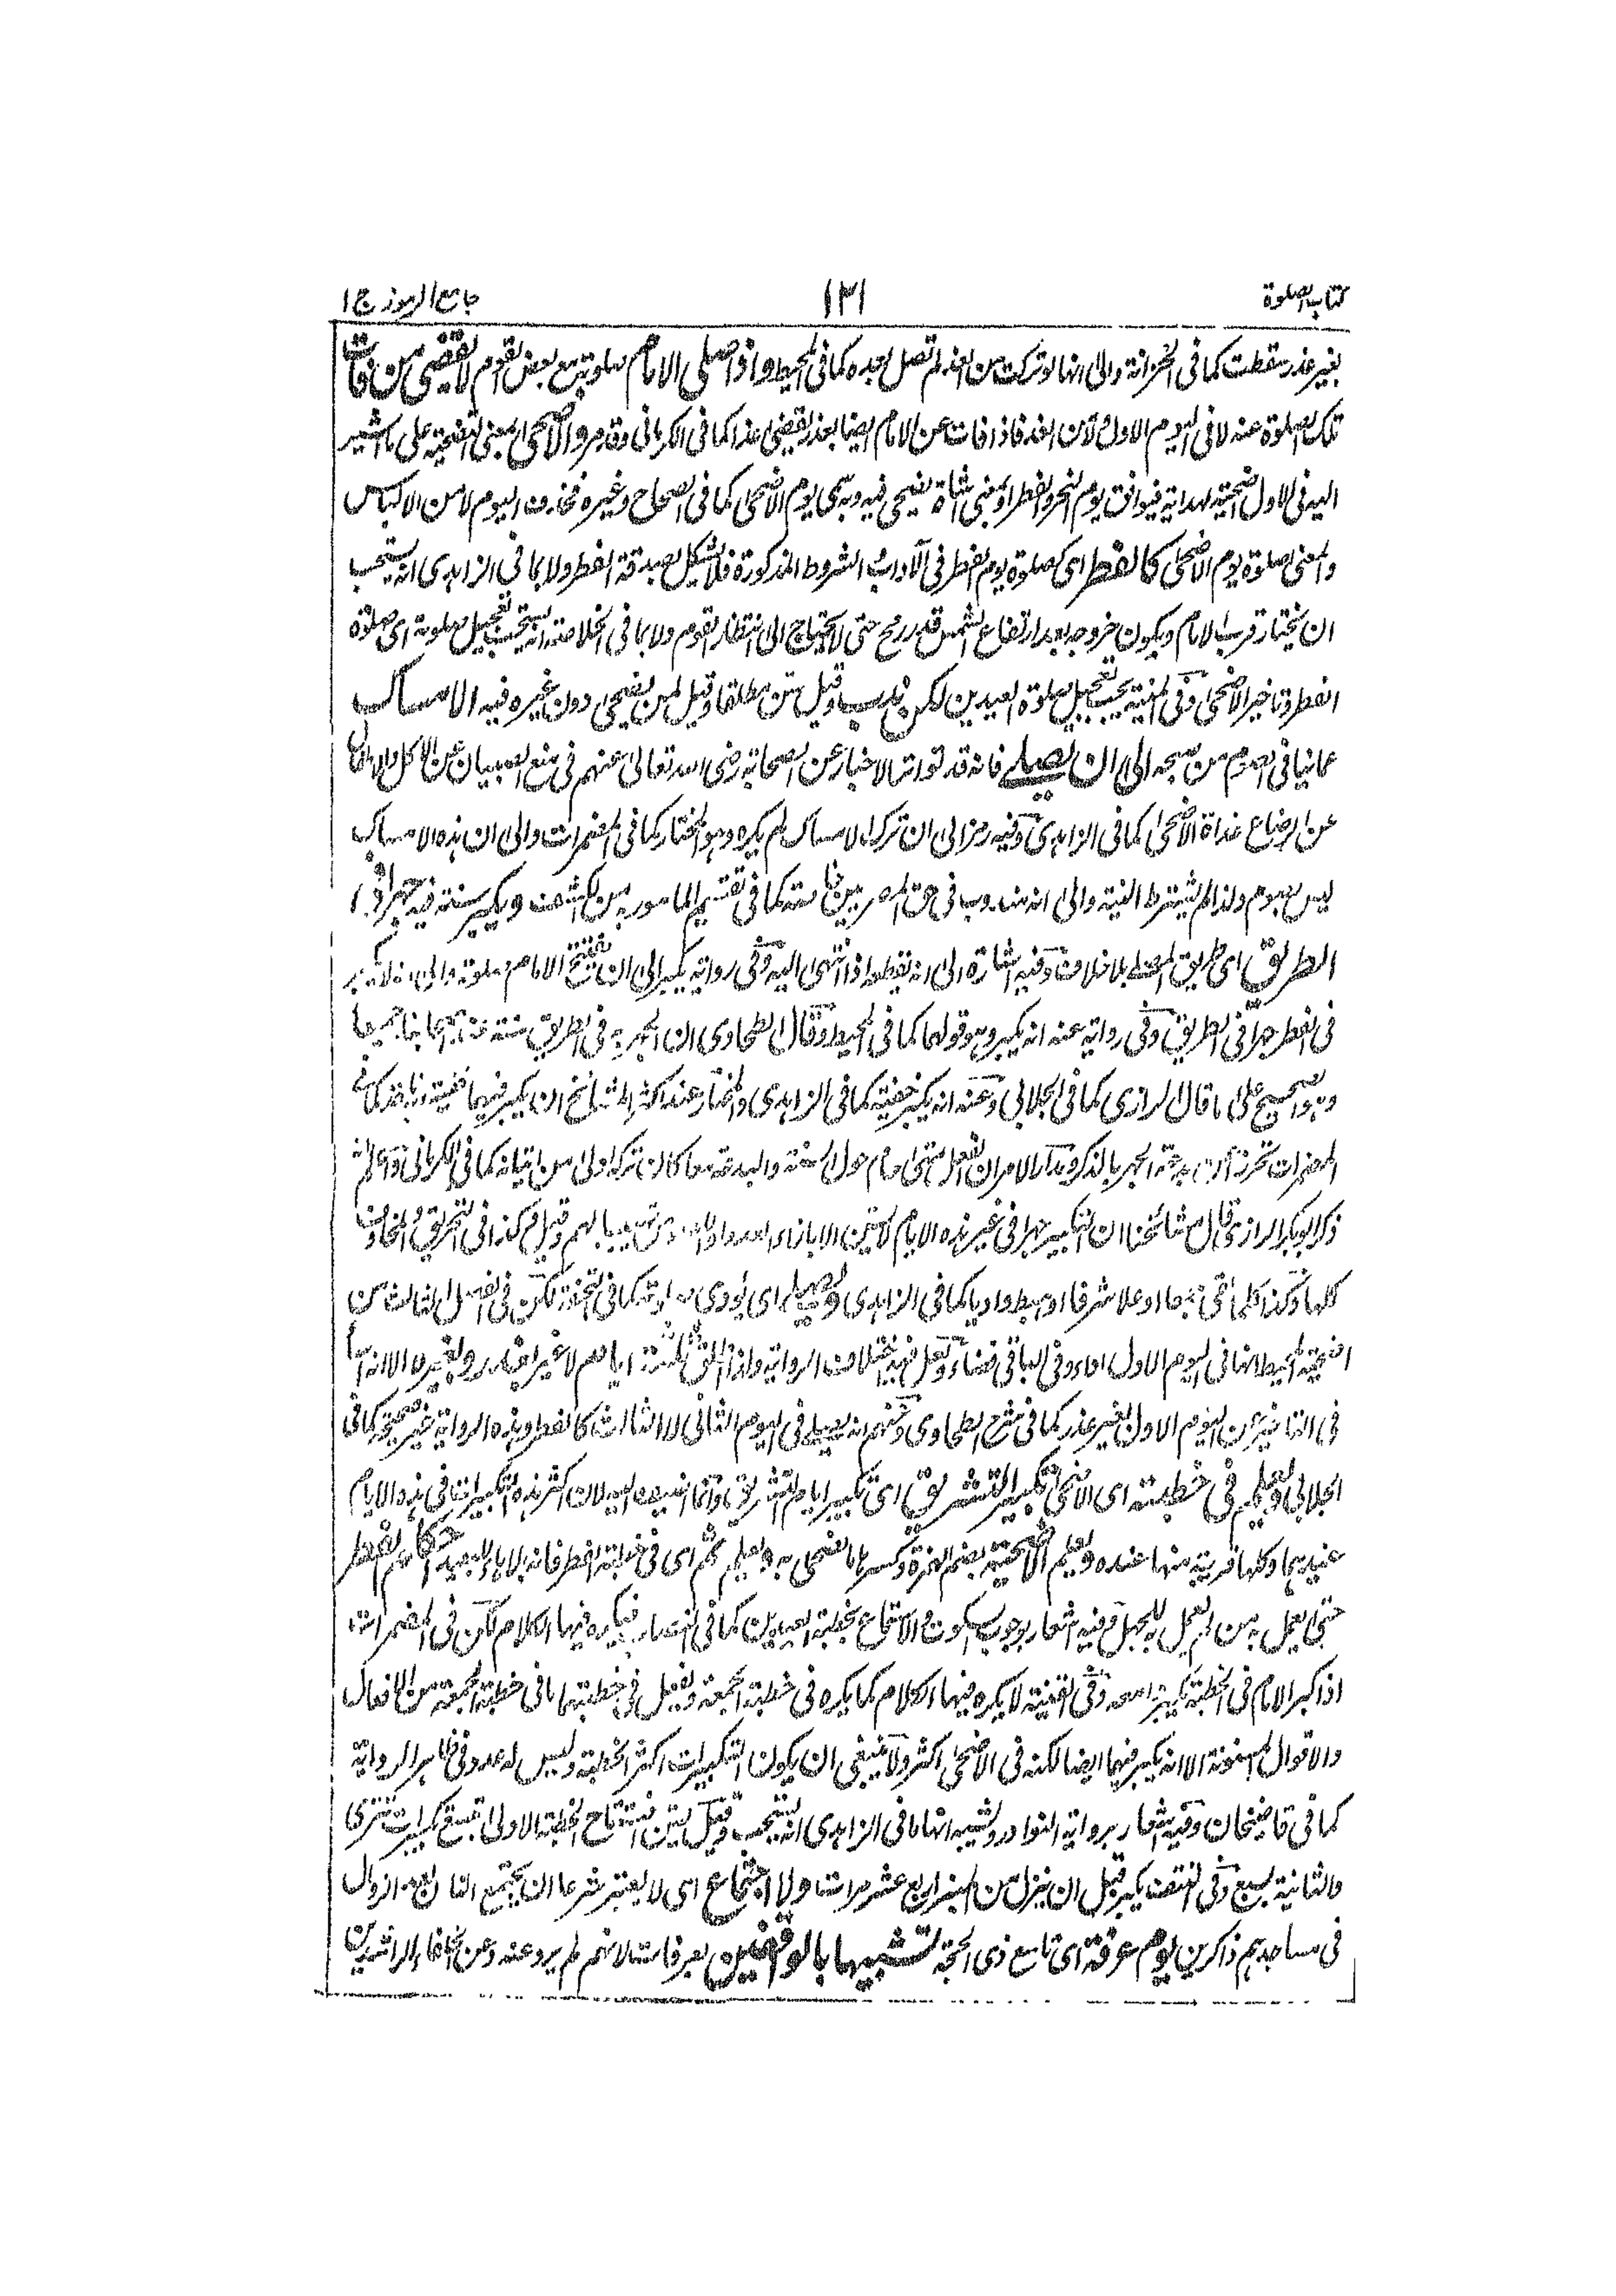 كتاب الصلوة
١٢١
جامع الرموز ج ١
بغير عذر سقطت كما فى الخزانة والى انها لو تركت من الغد لم تصل بعده كما فى المحيط واذا صلى الامام صلوته مع بعض القوم لا يقضى من فاتت
تلك الصلوة عنه لا فى اليوم الاول ولا من الغد فاذا فات عن الامام ايضا بعذر يقضى غدا كما فى الكرمانى وقد مر والاضحى بمعنى التضحية على ما اشير
اليه فى الاول اضحية لهداية فيوافق يوم النحر والفطر او بمعنى شاة يضحى فيه وبه سمى يوم الاضحى كما فى الصحاح وغيره فحذف اليوم لا من الالتباس
والمعنى صلوة يوم الاضحى كالفطر اى كصلوة يوم الفطر فى الآداب الشروط المذكورة فلا يشكل بصدقة الفطر ولا بما فى الزاهدى انه يستحب
ان يختار قرب الامام ويكون خروجه بعد ارتفاع الشمس قدر رمح حتى لا يحتاج الى انتظار القوم ولا بما فى الخلاصة انه يستحب تعجيل صلوته اى صلوة
الفطر وتاخير الاضحى وفى المنية يجب تعجيل صلوة العيدين لكن ندب وقيل سن مطلقا وقيل لمن يضحى دون غيره فيه الامساك
عما ينافى الصوم من صبحه الى ان يصلى فانه قد تواتر الاخبار عن الصحابة رضى الله تعالى عنهم فى منع الصبيان عن الاكل والاطفال
عن الرضاع غداة الاضحى كما فى الزاهدى وفيه رمز الى ان ترك الامساك لم يكره وهو المختار كما فى المضمرات والى ان هذه الامساك
ليس بصوم ولذا لم يشترط النية والى انه مندوب فى حق المصريين خاصة كما فى تقسيم المامور به من الكشف ويكبر سنة فيه جهرا فى
الطريق اى طريق المصلى بلا خلاف وفيه اشارة الى انه يقطع اذا انتهى اليه وفى رواية يكبر الى ان يفتتح الامام صلوته والى انه لا يكبر
فى الفطر جهرا فى الطريق وفى رواية عنه انه يكبر وهو قولهما كما فى المحيط وقال الطحاوى ان الجهر به فى الطريق سنة عند اصحابنا جميعا
وهو الصحيح على ما قال الرازى كما فى الجلابى وعنه انه يكبر خفية كما فى الزاهدى والمختار عند اكثر المشايخ ان يكبر فيهما خفية
المضمرات تحرزا عن بدعة الجهر بالذكر
ذكر ابو بكر الرازى قال مشائخنا ان التكبير جهرا فى غير هذه الايام لا يسن الا بازاء العدو وقيل وكذا فى الحريق والمخاوف
كلها وكذا كلما لقى جمعا او علا شرفا او هبط واديا كما فى الزاهدى ويصلى اى يؤدى كما فى التحفة لكن فى الفصل الثالث من
اضحية المحيط انها فى اليوم الاول اداء وفى الباقى قضاء ولعل فيه اختلاف الرواية ثلثة ايام لا غير بعذر ولغيره الا انه
فى التاخير من اليوم الاول بغير عذر كما فى شرح الطحاوى وعنهم انه يصلى فى اليوم الثانى لا الثالث كالفطر وهذه الرواية غير صحيحة كما فى
الجلابى ويعلم فى خطبته اى الاضحى تكبير التشريق اى تكبير ايام التشريق وانما اضيف اليه لان اكثر هذه التكبيرات فى هذه الايام
عندهما وكلها قريبة منها عنده ويعلم الاضحية بضم الهمزة وكسرها ما يضحى به ويعلم ثم اى فى خطبة الفطر احكام الفطر
حتى يعمل به من لم يعمل للجهل وفيه اشعار بوجوب السكوت والاستماع بخطبة العيدين فيكره فيها الكلام لكن فى المضمرات
اذا كبر الامام فى الخطبة يكبر معه وفى القنية لا يكره فيها الكلام كما يكره فى خطبة الجمعة ويفعل فى خطبتها ما فى خطبة الجمعة من الافعال
والاقوال المسنونة الا انه يكبر فيهما ايضا لكنه فى الاضحى اكثر ولا ينبغى ان يكون التكبيرات اكثر الخطبة وليس له عدد فى ظاهر الرواية
كما فى قاضيخان وفيه اشعار برواية النوادر وليشبه انها ما فى الزاهدى انه يستحب وقيل يسن افتتاح الخطبة الاولى بتسع تكبيرات تترى
والثانية بسبع وفى النتف يكبر قبل ان ينزل من المنبر اربع عشر مرات ولا اجتماع اى لا يعتبر شرعا ان يجتمع الناس بعد الزوال
فى مساجدهم ذاكرين يوم عرفة اى تاسع ذى الحجة تشبيها بالواقفين بعرفات لانهم لم يرو عنه وعن الخلفاء الراشدين